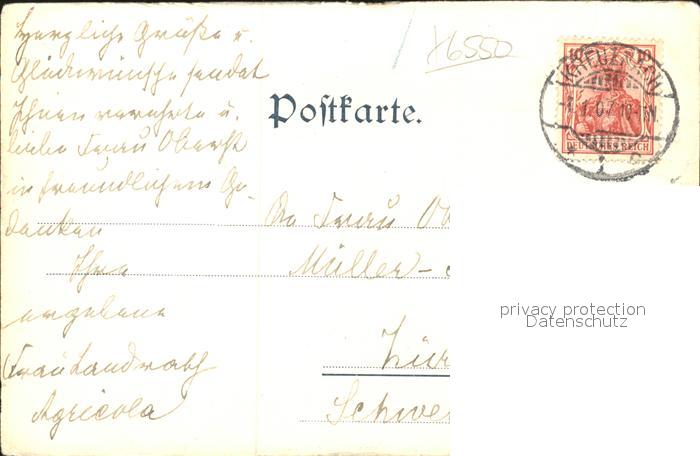 Herzliche Grüße u.
Glückwünsche sendet
Ihnen verehrte u.
liebe Frau Oberst
in freundlichem Ge-
denken
Ihre
ergebene
Frau Landrath
Agricola
76550
Postkarte.
DEUTSCHES REICH
An Frau Ob
Müller-
Zür
Schwe
privacy protection
Datenschutz